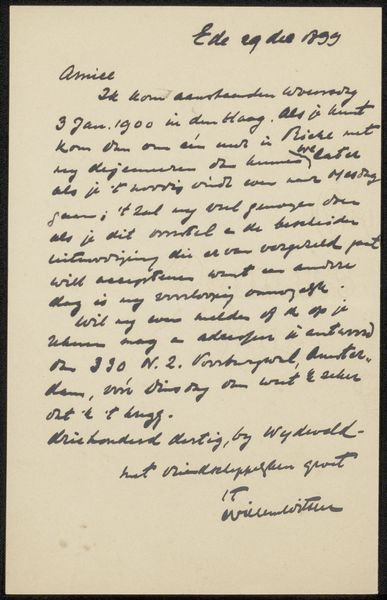 Ede 29 dec 1899
Amice
Ik kom aanstaanden Woensdag
3 Jan. 1900 in den Haag. Als je kunt
kom dan om één uur in Riche met
my dejeuneeren dan kunnen we later
als je 't noodig vindt even naar Mesdag
gaan; 't Zal my veel genoegen doen
als je dit voorstel en de bescheiden
uitnoodiging die er van vergezeld gaat
wilt accepteeren want een andere
dag is my voorloopig onmogelyk.
Wil my even melden of ik op je
rekenen mag en adresseer je antwoord
aan 330 N.Z. Voorburgwal, Amster-
dam, vóór Dinsdag dan weet ik zeker
dat ik 't krijg.
driehonderd dertig, by Wydeveld -
met vriendschappelyken groet
't
Willem Witsen